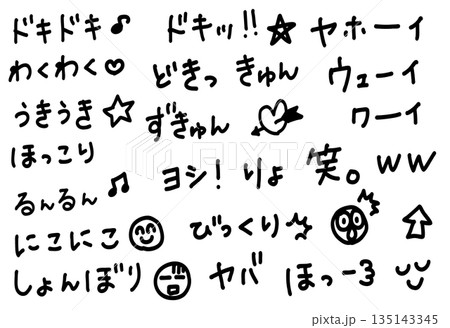 ドキドキ♪ ドキッ!! ☆ ヤホーイ
わくわく♡ どきっ きゅん ウェーイ
うきうき☆ ずきゅん ワーイ
ほっこり
るんるん♫ ヨシ! りょ 笑。 ww
にこにこ びっくり
しょんぼり ヤバ ほっー3
PIXTA
pixta.jp - 135143345